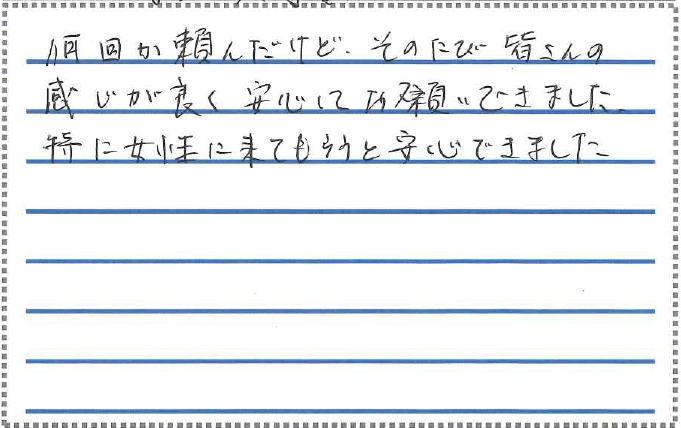 何回か頼んだけど、そのたび皆さんの
感じが良く安心してお願いできました。
特に女性に来てもらうと安心できました